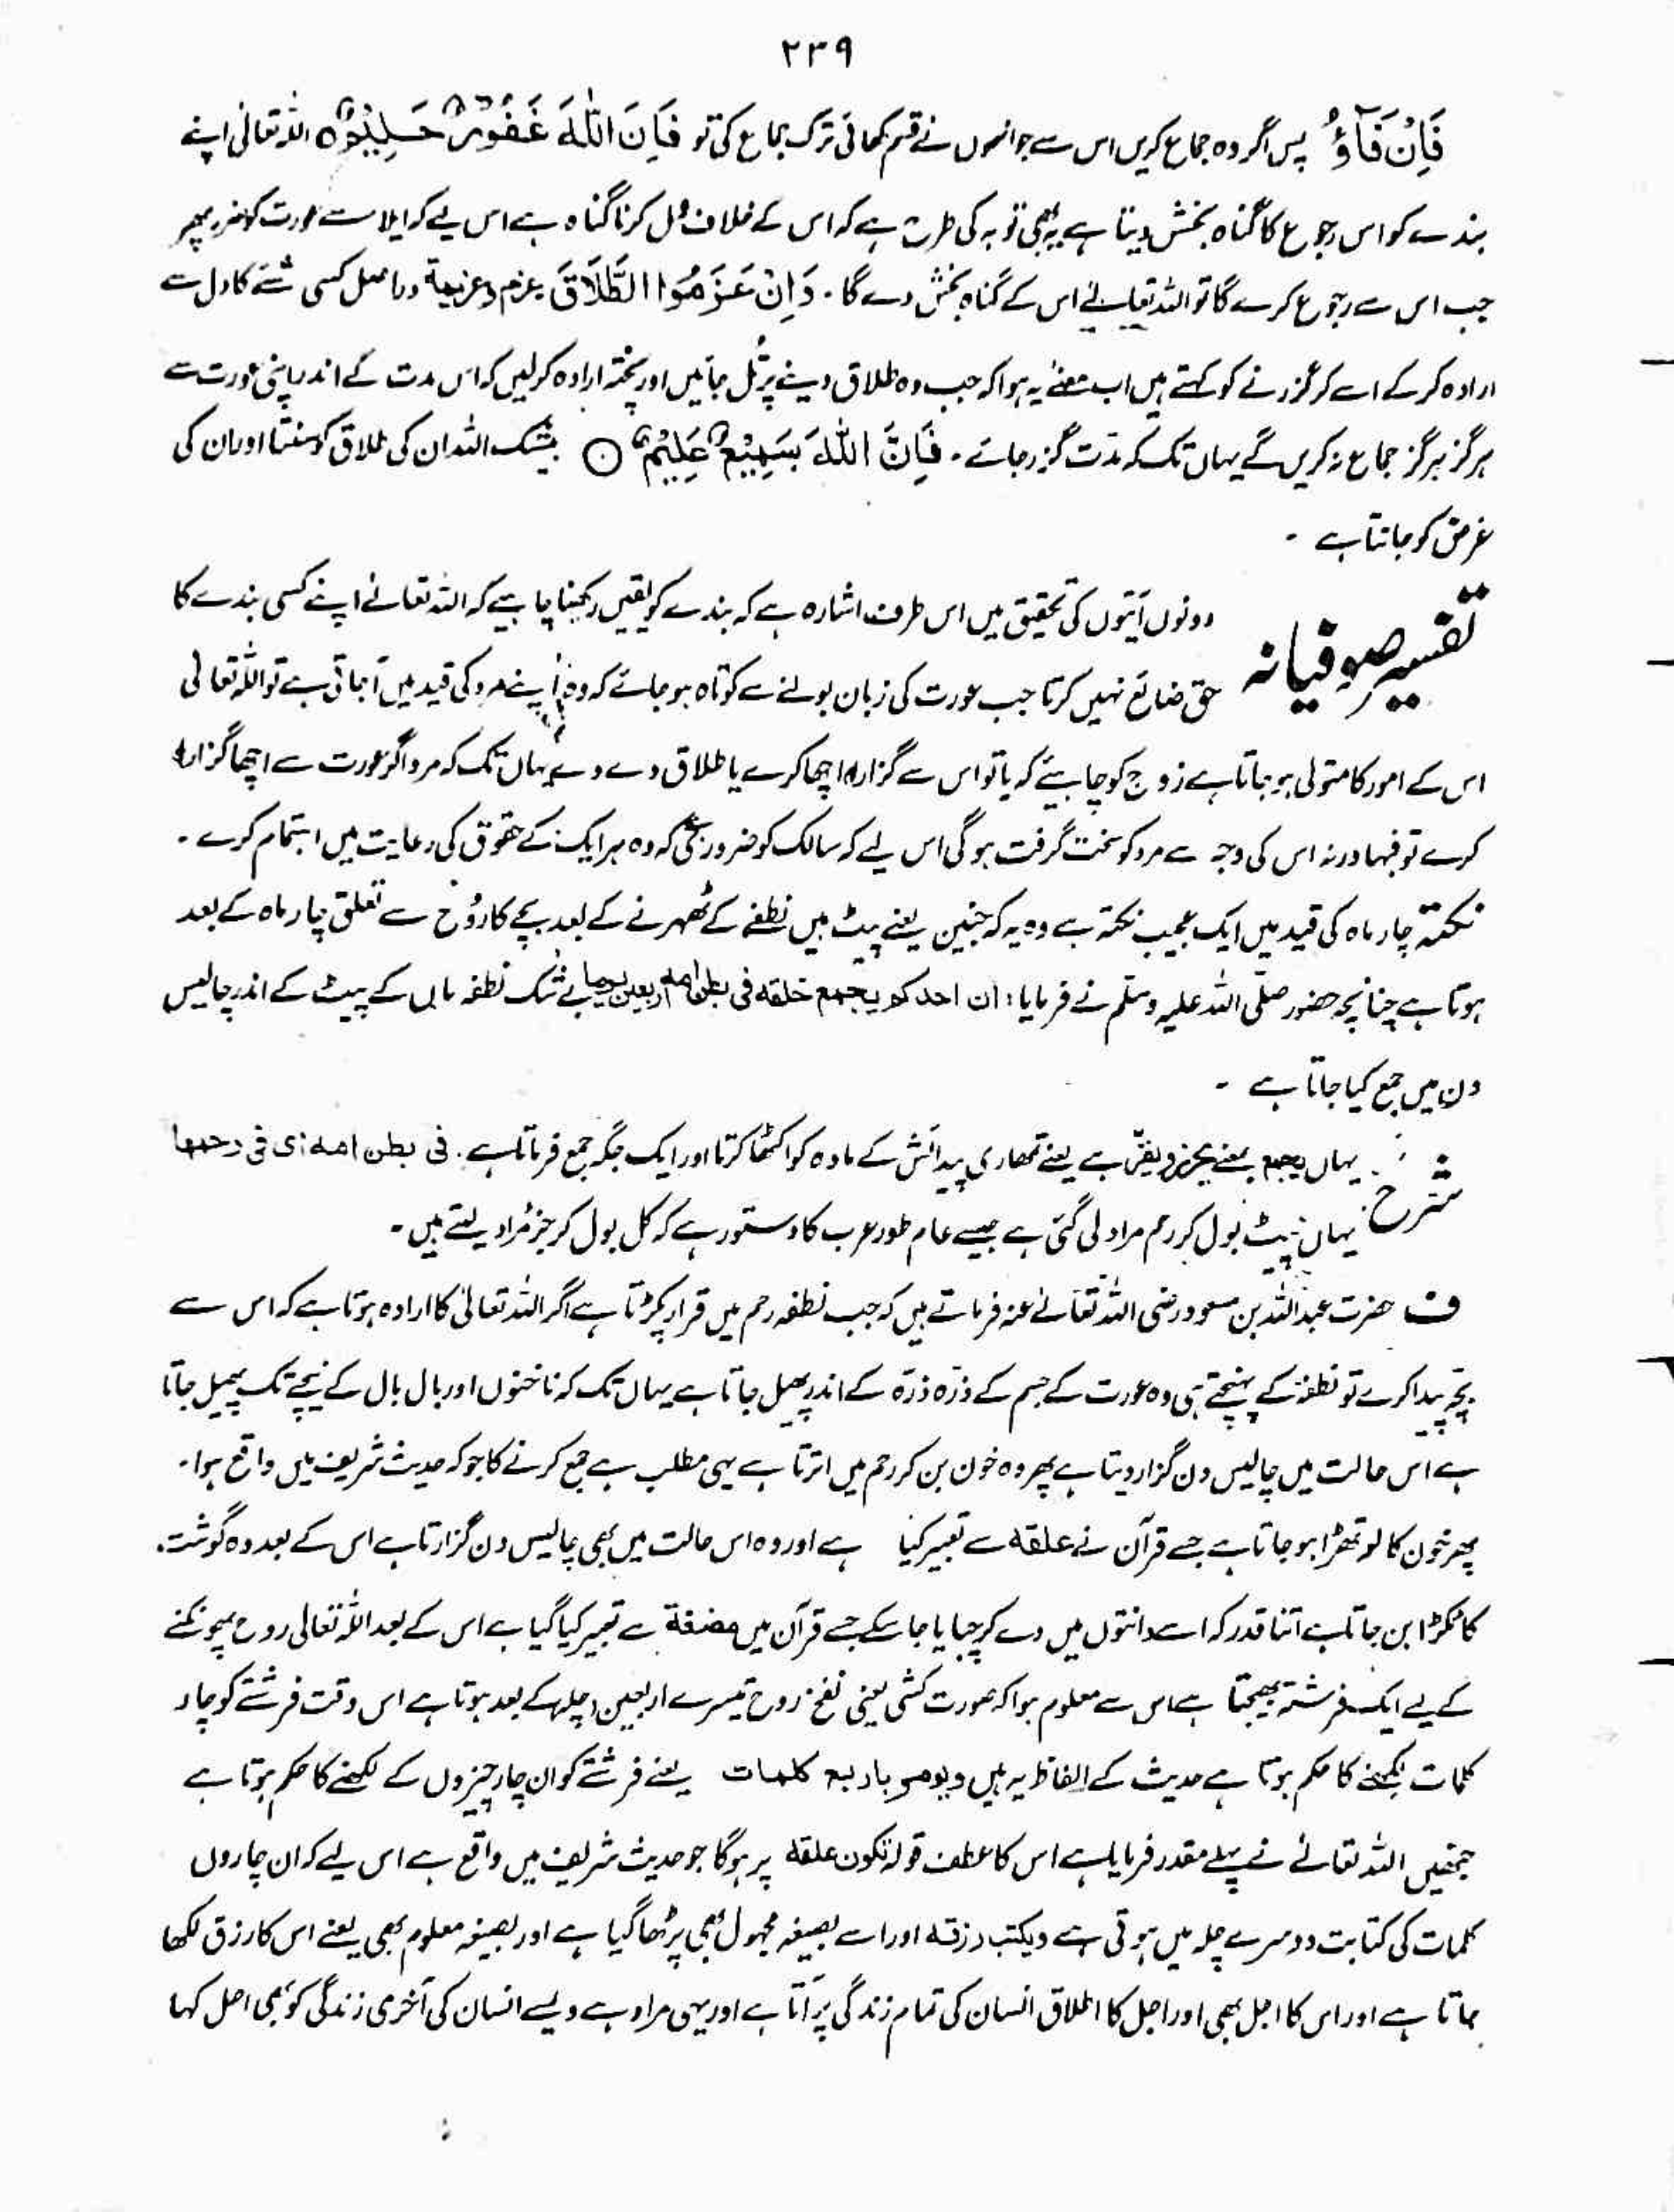 ۲۳۹
فَاِنْ فَآؤُ پس اگر وہ جماع کریں اس سے جو انہوں نے قسم کھائی ترک جماع کی تو فَاِنَ اللّٰهَ غَفُوْرٌ حَلِيْمٌ ٥ اللہ تعالٰی اپنے
بندے کو اس رجوع کا گناہ بخش دیتا ہے یہ بھی توبہ کی طرح ہے کہ اس کے خلاف کرنا گناہ ہے اس لیے کہ ایلا سے عورت کو ضرر پھر
جب اس سے رجوع کرے گا تو اللہ تعالیٰ اس کے گناہ بخش دے گا ۔ وَاِنْ عَزَمُوا الطَّلَاقَ عزم و عزیمۃ دراصل کسی شئے کا دل سے
ارادہ کر کے اسے کر گزرنے کو کہتے ہیں اب معنٰے یہ ہوا کہ جب وہ طلاق دینے پر تُل جائیں اور پختہ ارادہ کر لیں کہ اس مدت کے اندر اپنی عورت سے
ہرگز ہرگز جماع نہ کریں گے یہاں تک کہ مدّت گزر جائے ۔ فَاِنَّ اللّٰهَ سَمِيْعٌ عَلِيْمٌ ○ بیشک اللہ ان کی طلاق کو سنتا اور ان کی
غرض کو جانتا ہے ۔
تفسیر صوفیانہ دونوں آیتوں کی تحقیق میں اس طرف اشارہ ہے کہ بندے کو یقین رکھنا چاہیے کہ اللہ تعالٰے اپنے کسی بندے کا
حق ضائع نہیں کرتا جب عورت کی زبان بولنے سے کوتاہ ہو جائے کہ وہ اپنے مرد کی قید میں آ جاتی ہے تو اللہ تعالٰی
اس کے امور کا متولی ہو جاتا ہے زوج کو چاہیئے کہ یا تو اس سے گزارہ اچھا کرے یا طلاق دے دے یہاں تک کہ مرد اگر عورت سے اچھا گزارہ
کرے تو فبہا ورنہ اس کی وجہ سے مرد کو سخت گرفت ہو گی اس لیے کہ سالک کو ضروری کہ وہ ہر ایک کے حقوق کی رعایت میں اہتمام کرے ۔
نکتہ چار ماہ کی قید میں ایک عجیب نکتہ ہے وہ یہ کہ جنین یعنے پیٹ میں نطفے کے ٹھہرنے کے بعد بچے کا رُوح سے تعلق چار ماہ کے بعد
ہوتا ہے چنانچہ حضور صلّی اللہ علیہ وسلّم نے فرمایا : ان احدکم یجمع خلقہ فی بطن امہ اربعین یوما بے شک نطفہ ماں کے پیٹ کے اندر چالیس
دن میں جمع کیا جاتا ہے ۔
شرح : یہاں یجمع بمعنے ہے یعنے تمھاری پیدائش کے مادہ کو اکٹھا کرتا اور ایک جگہ جمع فرماتا ہے ۔ فی بطن امہ ای فی رحمہا
یہاں پیٹ بول کر رحم مراد لی گئی ہے جیسے عام طور عرب کا دستور ہے کہ کل بول کر جز مُراد لیتے ہیں ۔
ف حضرت عبداللہ بن مسعود رضی اللہ تعالٰے عنہ فرماتے ہیں کہ جب نطفہ رحم میں قرار پکڑتا ہے اگر اللہ تعالٰی کا ارادہ ہوتا ہے کہ اس سے
بچّہ پیدا کرے تو نطفہ کے پہنچتے ہی وہ عورت کے جسم کے ذرّہ ذرّہ کے اندر پھیل جاتا ہے یہاں تک کہ ناخنوں اور بال بال کے نیچے تک پھیل جاتا
ہے اس حالت میں چالیس دن گزار دیتا ہے پھر وہ خون بن کر رحم میں اترتا ہے یہی مطلب ہے جمع کرنے کا جو کہ حدیث شریف میں واقع ہوا ۔
پھر خون کا لوتھڑا ہو جاتا ہے جسے قرآن نے علقۃ سے تعبیر کیا ہے اور وہ اس حالت میں بھی چالیس دن گزارتا ہے اس کے بعد وہ گوشت
کا ٹکڑا بن جاتا ہے اتنا قدر کہ اسے دانتوں میں دے کر چبایا جا سکے جسے قرآن میں مضغۃ سے تعبیر کیا گیا ہے اس کے بعد اللہ تعالٰی روح پھونکنے
کے لیے ایک فرشتہ بھیجتا ہے اس سے معلوم ہوا کہ صورت کشی یعنی نفخ روح تیسرے اربعین (چلہ) کے بعد ہوتا ہے اس وقت فرشتے کو چار
کلمات لکھنے کا حکم ہوتا ہے حدیث کے الفاظ یہ ہیں ویومر باربع کلمات یعنے فرشتے کو ان چار چیزوں کے لکھنے کا حکم ہوتا ہے
جنھیں اللہ تعالٰے نے پہلے مقدر فرمایا ہے اس کا عطف قولہ تکون علقۃ پر ہوگا جو حدیث شریف میں واقع ہے اس لیے کہ ان چاروں
کلمات کی کتابت دوسرے چلہ میں ہوتی ہے ویکتب رزقہ اور اسے بصیغہ مجہول بھی پڑھا گیا ہے اور بصیغہ معلوم بھی یعنے اس کا رزق لکھا
جاتا ہے اور اس کا اجل بھی اور اجل کا اطلاق انسان کی تمام زندگی پر آتا ہے اور یہی مراد ہے ویسے انسان کی آخری زندگی کو بھی اجل کہا